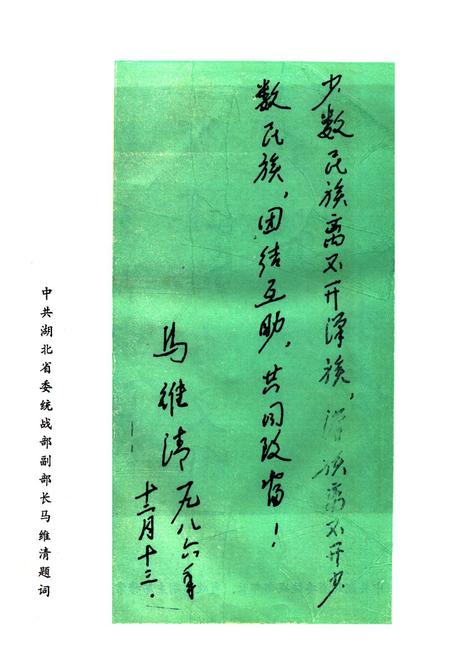 少数民族离不开汉族，汉族离不开少
数民族，团结互助，共同致富！
马维清 一九八六年
十二月十三.
中共湖北省委统战部副部长马维清题词